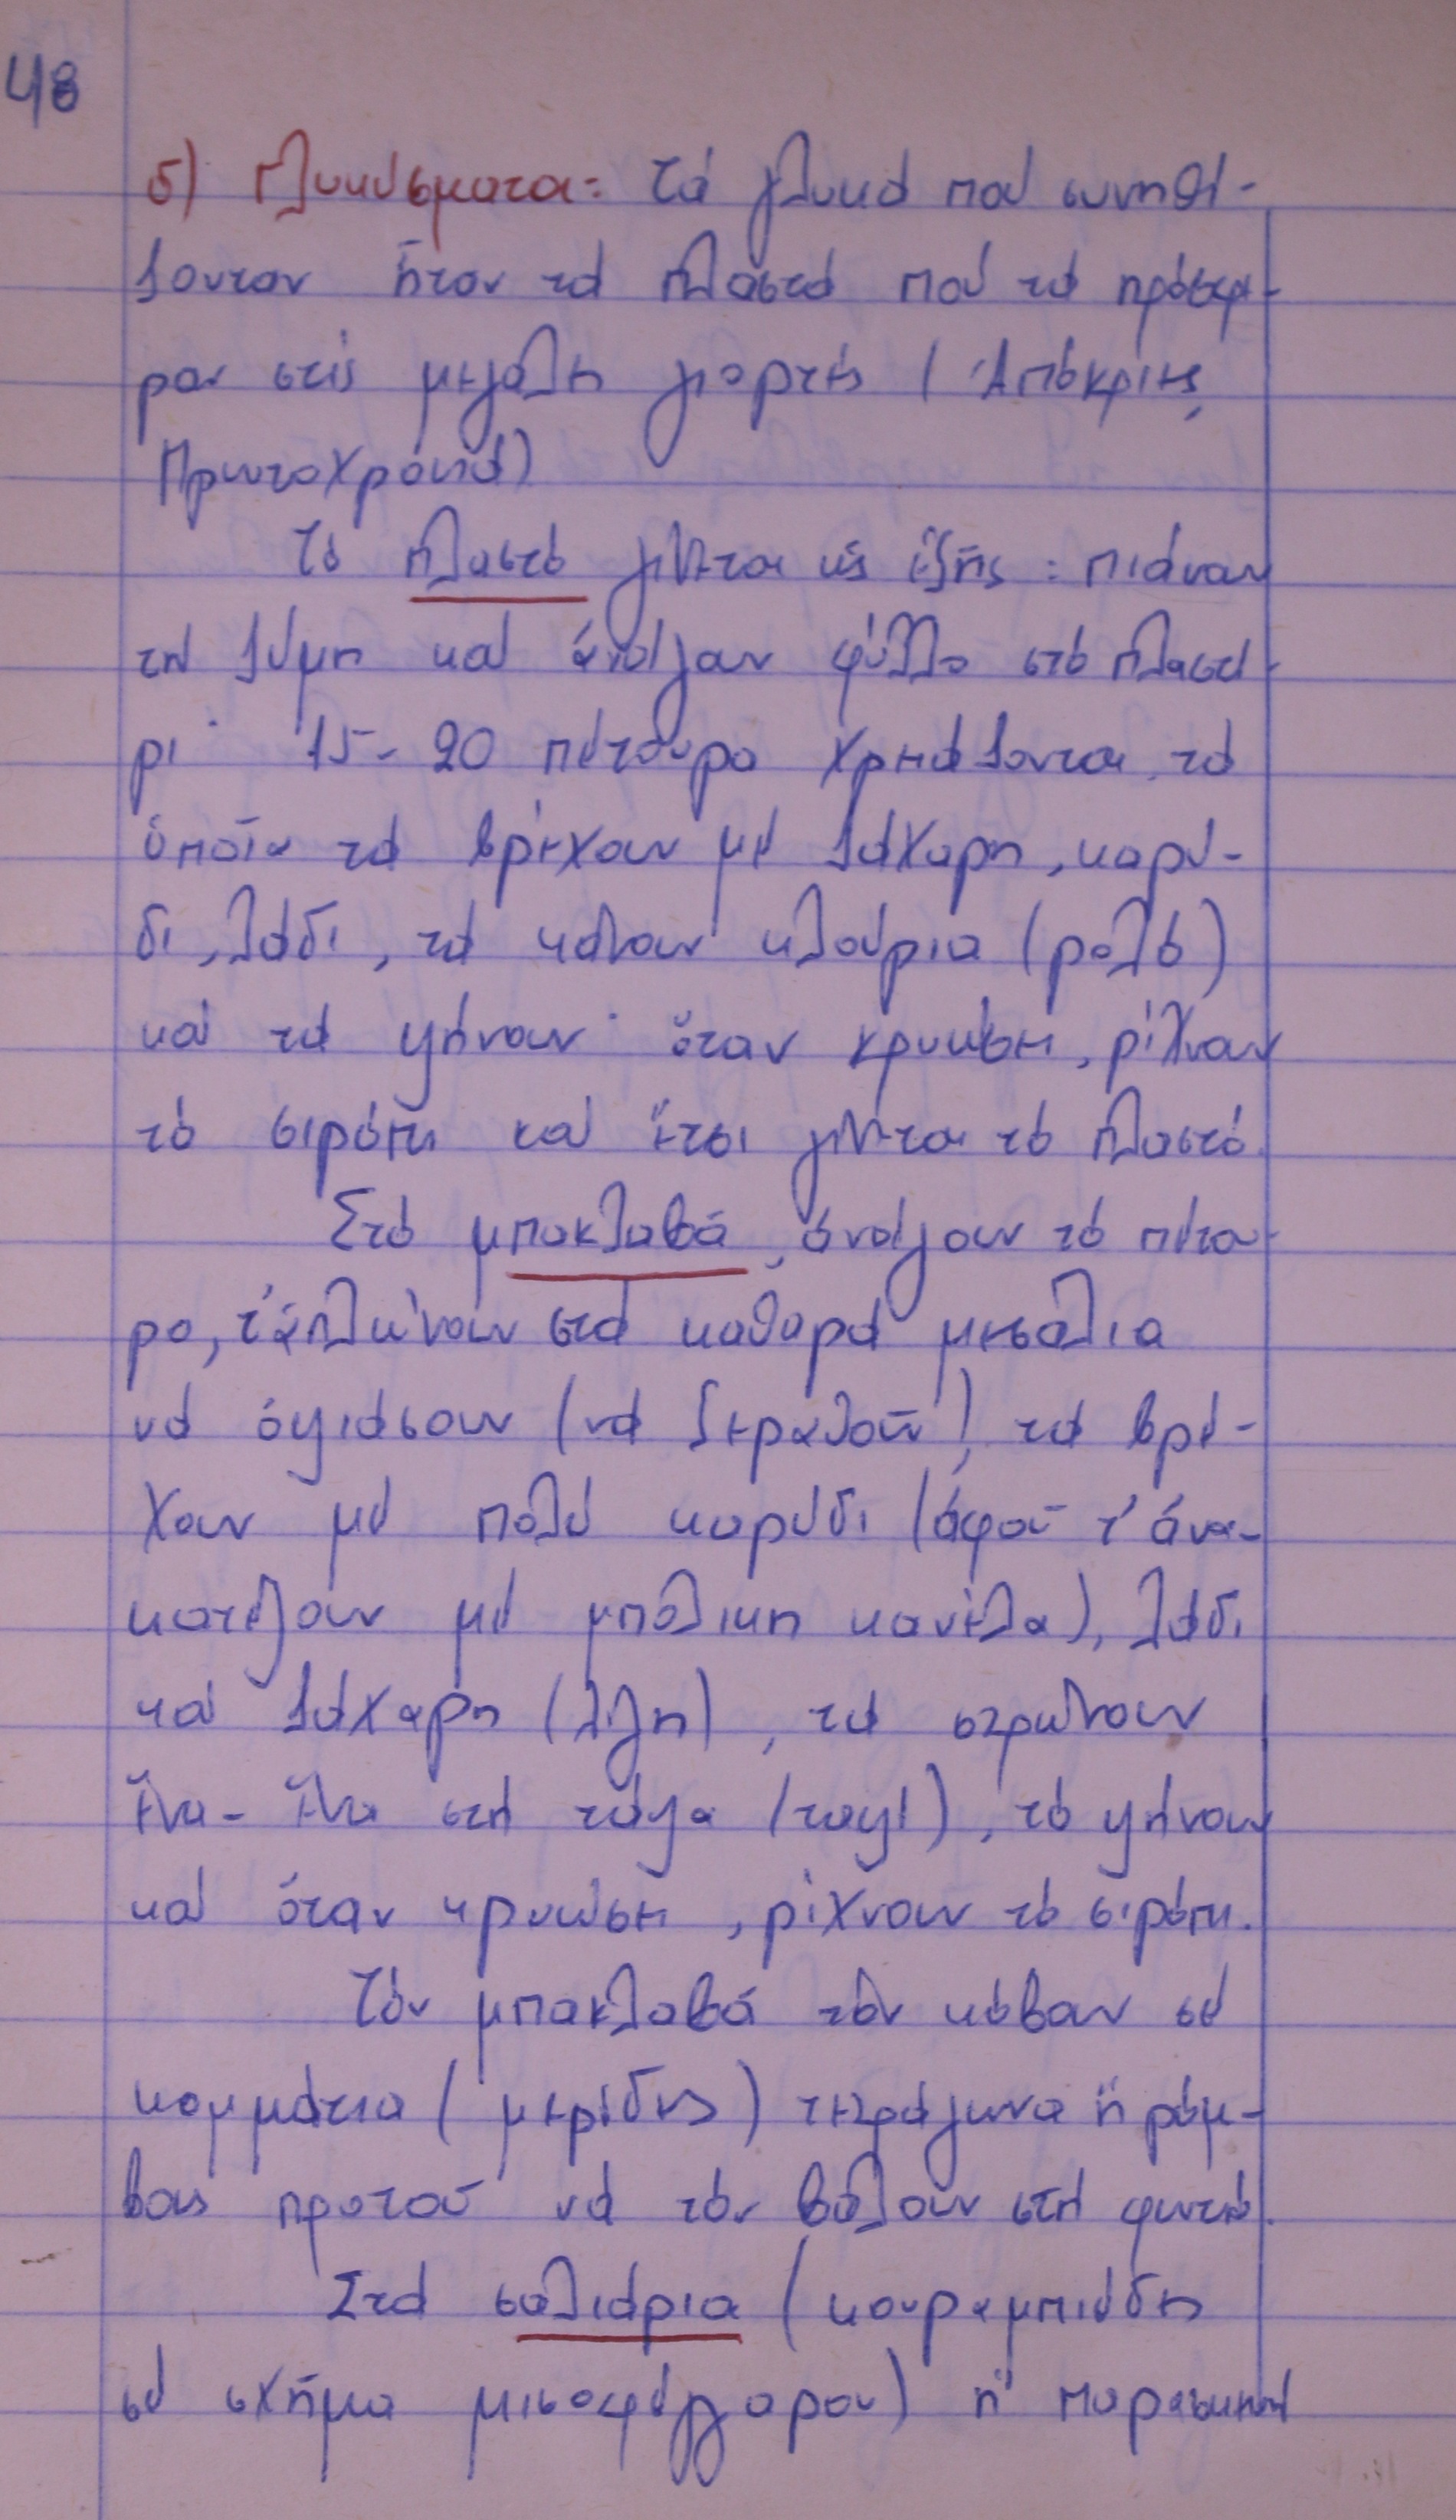 48
δ) Γλυκύσματα: Τά γλυκά πού συνηθί-
ζονταν ἦταν τά πλαστά πού τά πρόσφε-
ραν στίς μεγάλες γιορτές (Ἀπόκριες,
Πρωτοχρονιά)
Τό πλαστό γίνεται ὡς ἑξῆς: πιάναν
τή ζύμη καί ἀνοίγαν φύλλο στό πλαστή-
ρι. 15-20 πέτουρα χρειάζονται, τά
ὁποῖα τά βρέχουν μέ ζάχαρη, καρύ-
δι, λάδι, τά κάνουν κλούρια (ρολό)
καί τά ψήνουν· ὅταν κρυώσει, ρίχναν
τό σιρόπι καί ἔτσι γίνεται τό πλαστό.
Στό μπακλαβά, ἀνοίγουν τό πέτου-
ρο, τ' ἁπλώνουν στά καθαρά μεσάλια
νά ὀψιάσουν (νά ξεραθοῦν), τά βρέ-
χουν μέ πολύ καρύδι (ἀφοῦ τ' ἀνα-
κατέψουν μέ μπόλικη κανέλα), λάδι
καί ζάχαρη (λίγη), τά στρώνουν
ἕνα-ἕνα στή τάψα (ταψί), τό ψήνουν
καί ὅταν κρυώσει, ρίχνουν τό σιρόπι.
Τόν μπακλαβά τόν κόβαν σέ
κομμάτια (μερίδες) τετράγωνα ἤ ρόμ-
βους προτοῦ νά τόν βάλουν στή φωτιά.
Στά σαλιάρια (κουραμπιέδες
σέ σχῆμα μισοφέγγαρου) ἡ παρασκευή